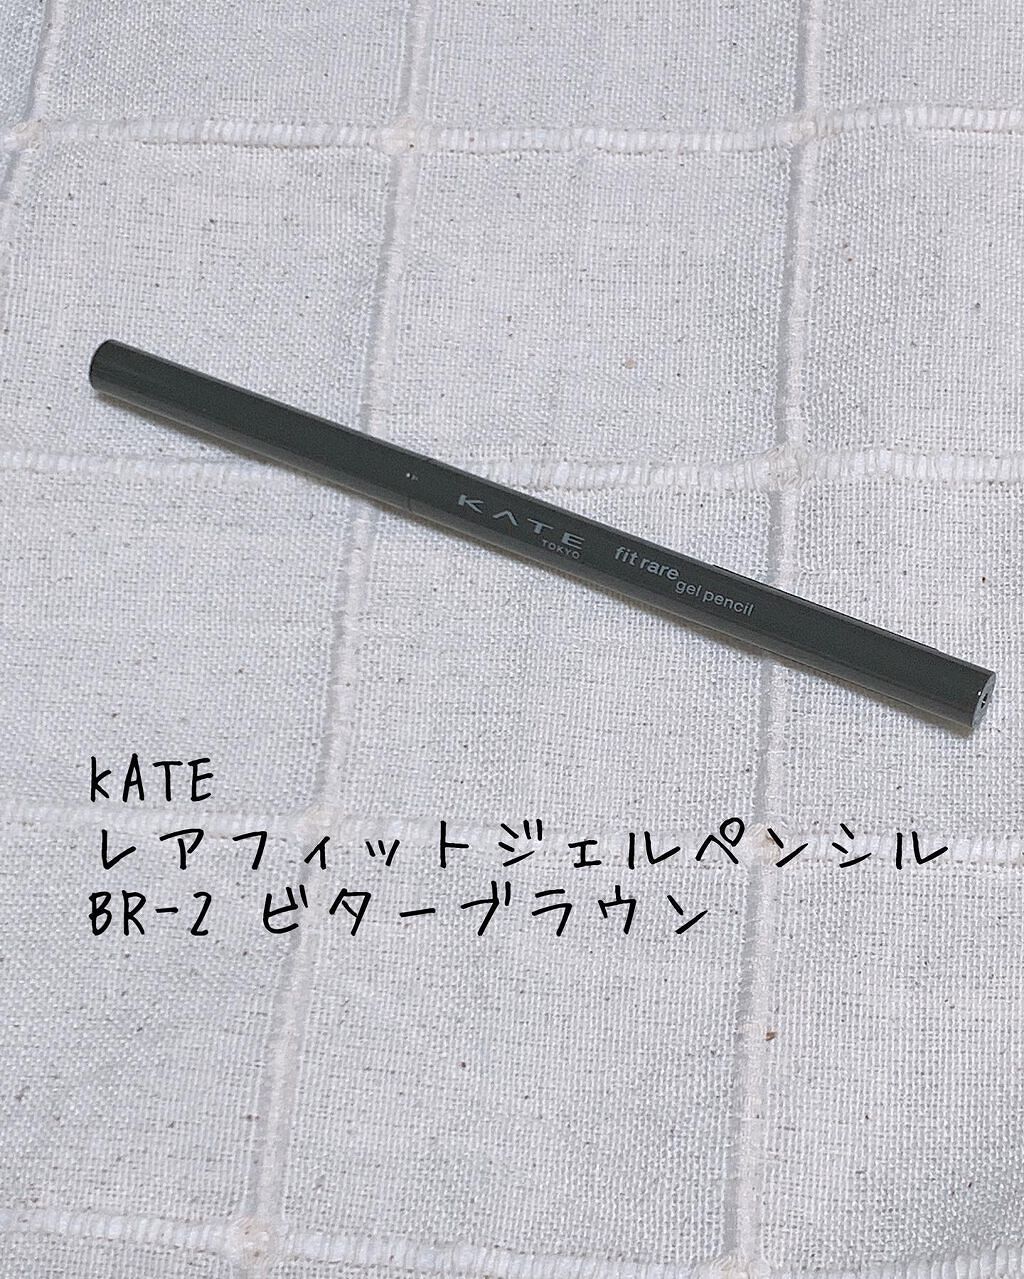 KATE
TOKYO
fit rare
gel pencil
KATE
レアフィットジェルペンシル
BR-2 ビターブラウン